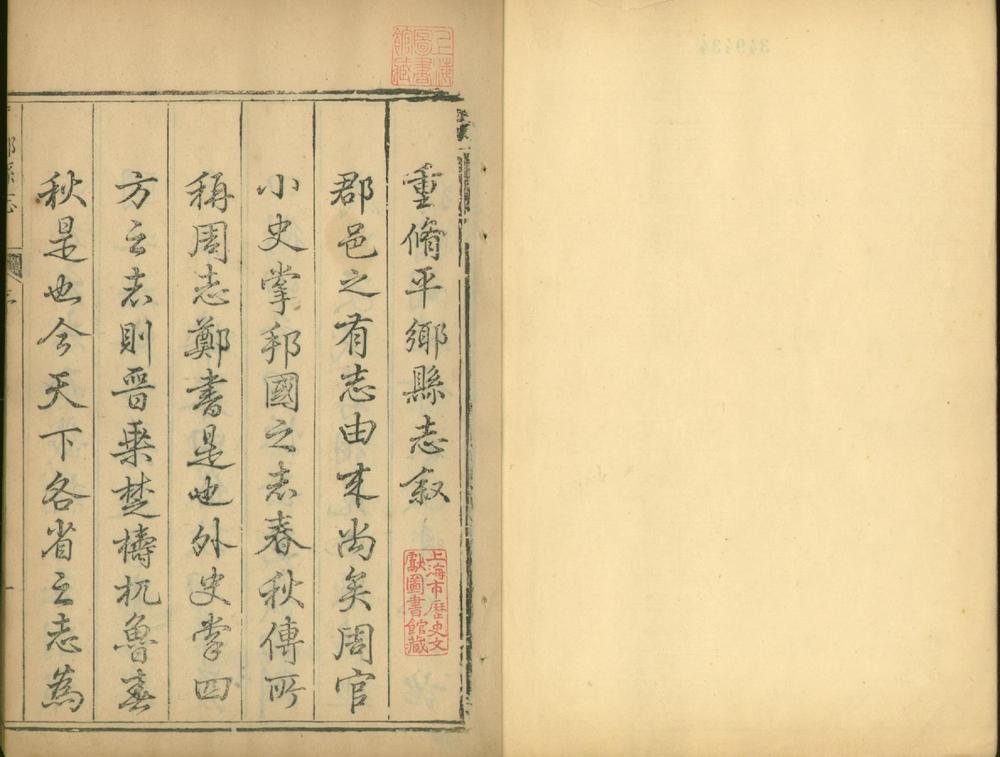 上海圖書館藏
重脩平鄉縣志叙
上海市歷史文獻圖書館藏
郡邑之有志由来尚矣周官
小史掌邦國之志春秋傳所
稱周志鄭書是也外史掌四
方之志則晋乗楚檮杌魯春
秋是也今天下各省之志為
鄉縣志
一
349434